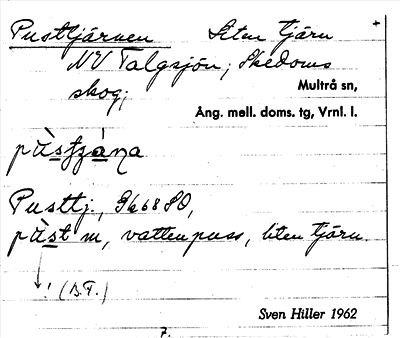 Pusttjärnen Liten tjärn +
NV Talgsjön; Skedoms
skog;
Multrå sn,
Ång. mell. doms. tg, Vrnl. l.
Pusttj., 9668 SO,
m, vattenpuss, liten tjärn.
! (B.T.)
Sven Hiller 1962
7.